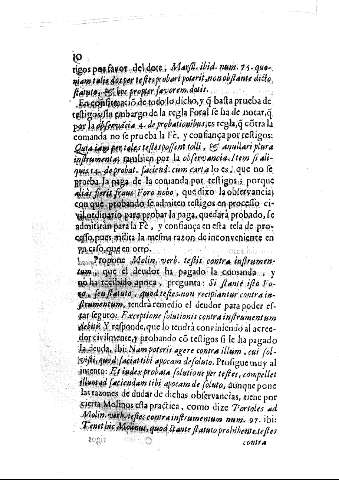 10
tigos por favor del dote, Marsil. ibid. num. 75. quo-
niam talis dos per testes probari poterit, non obstante dicto,
statuto, & hoc propter favorem dotis.
En confirmació de todo lo dicho, y q̃ basta prueba de
testigos sin embargo de la regla Foral se ha de notar, q̃
por la observancia 2. de probationibus, es regla, q̃ cõtra la
comanda no se prueba la Fè, y confiança por testigos:
Quia iam per tales testes possent tolli, & anullari plura
instrumenta; tambien por la observancia. Item si ali-
quis 12. de probat. faciend. cum carta lo es, que no se
prueba la paga de la comanda por testigos; porque
alias fieret fraus Foro novo, que dixo la observancia,
con que probando se admiten testigos en processo ci-
vil ordinario para probar la paga, quedarà probado, se
admitiràn para la Fè, y confiança en esta tela de pro-
cesso, pues milita la mesma razon de inconveniente en
vn caso, que en otro.
Propone Molin. verb. testis contra instrumen-
tum, que el deudor ha pagado la comanda, y
no ha recibido apoca, pregunta: Si stante isto Fo-
ro, seu statuto, quod testes non recipiantur contra in-
strumentum, tendrà remedio el deudor para poder es-
tar seguro: Exceptione solutionis contra instrumentum
debiti: Y responde, que lo tendrà conviniendo al acree-
dor civilmente, y probando cõ testigos q̃ le ha pagado
la deuda, ibi: Nam poterit agere contra illum, cui sol-
visti, quod faciat tibi apocam de soluto. Prosigue muy al
intento: Et iudex probata solutione per testes, compellet
illum ad faciendam tibi apocam de soluto, aunque pone
las razones de dudar de dichas observancias, tiene por
cierta Molinos esta practica, como dize Portoles ad
Molin. verb. testes contra instrumentum num. 97. ibi:
Tenet hic Molinus, quod stante statuto prohibente testes
contra